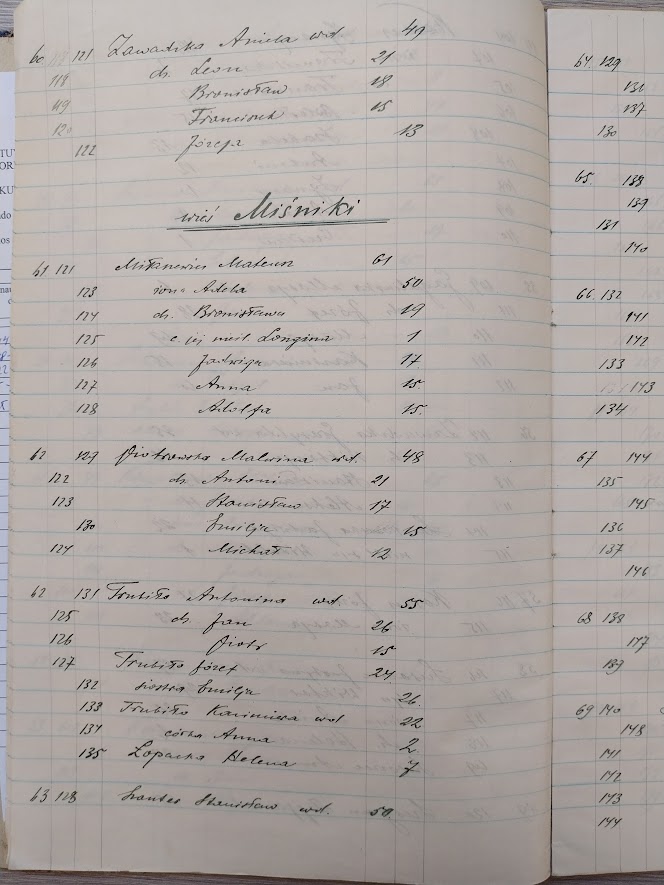 60 121 Zawadzka Aniela wd. 49
118 dz. Leon 21
119 Bronisław 18
120 Franciszek 15
122 Józefa 13
wieś Miśniki
61 121 Mateusz 61
123 żona Adela 50
124 dz. Bronisława 19
125 c. jej Longina 1
126 Jadwiga 17
127 Anna 15
128 Adolfa 15.
62 129 Piotrowska Malwina wd. 48
122 dz. Antoni 21
123 Stanisław 17
130 Emilja 15
124 Michał 12
62 131 Trubiło Antonina wd. 55
125 dz. Jan 26
126 Piotr 15
127 Trubiło Józef 24
132 siostra Emilja 26.
133 Trubiło Kazimiera wd 22
134 córka Anna 2
135 Łopacka Helena 7
63 128 Stanisław wd. 50
64. 129
136
137
130
65. 138
139
131
140
66. 132
141
142
133
143
134
67 144
135
145
136
137
146
68 138
147
139
69 140
148
141
142
143
144